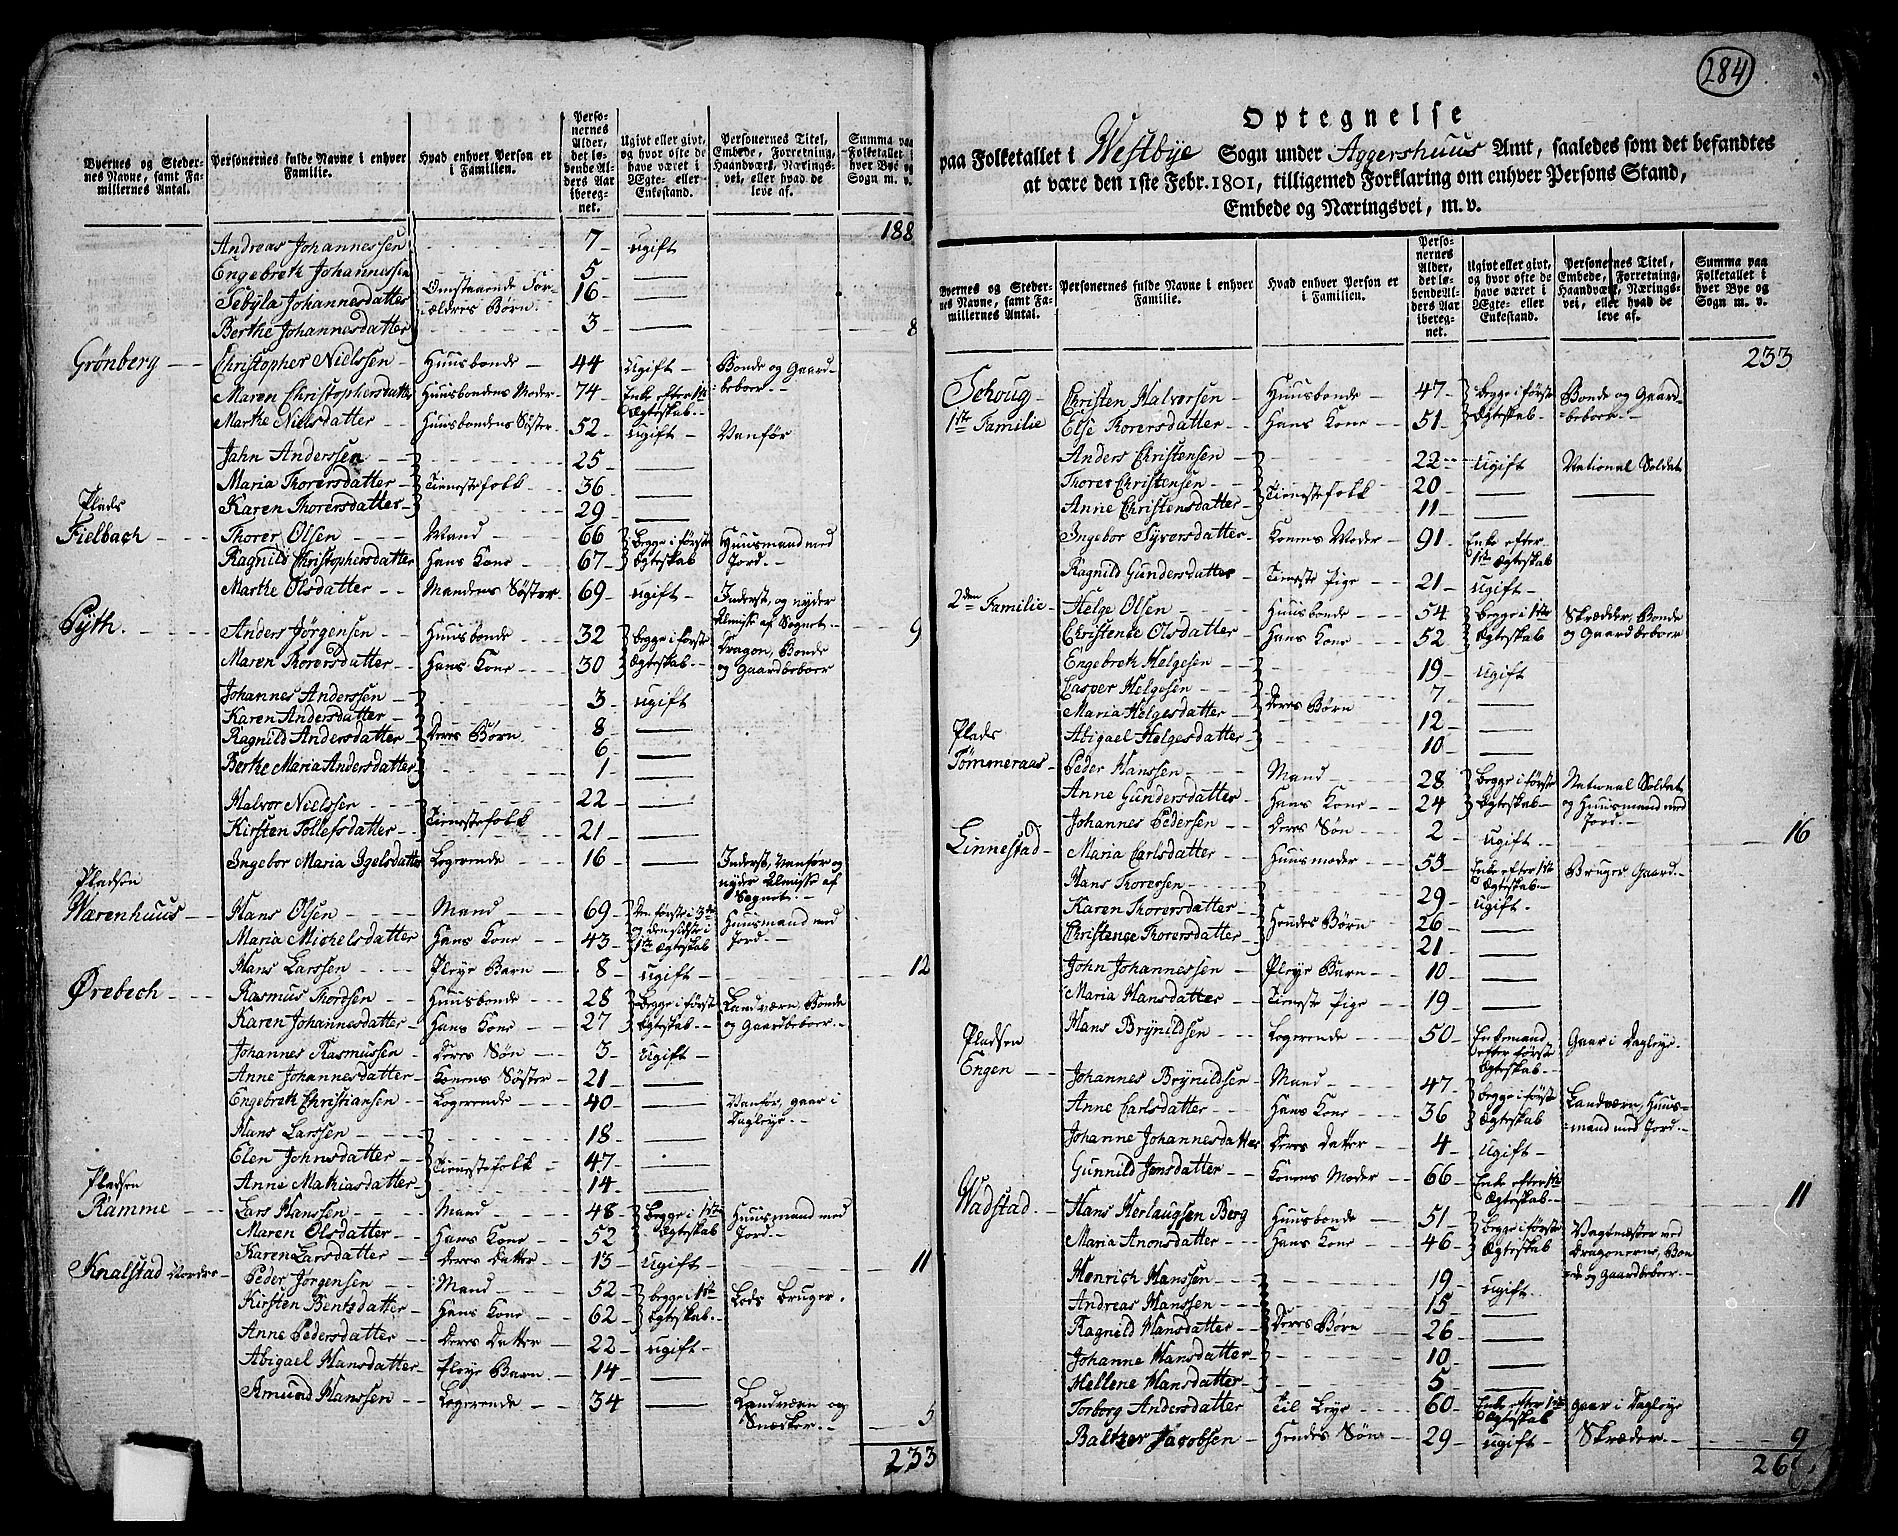 Byernes og Stedernes Navne, samt Familiernes Antal. | Personernes fulde Navne i enhver Familie. | Hvad enhver Person er i Familien. | Personernes Alder, det løbende Alders Aar iberegnet. | Ugivt eller givt, og hvor ofte de have været i Ægte- eller Enkestand. | Personernes Titel, Embede, Forretning, Haandværk, Næringsvei, eller hvad de leve af. | Summa paa Folketallet i hver Bye og Sogn m. v.
188
Andreas Johannessen 7 ugift
Engebreth Johannessen 5 —
Sebÿla Johannesdatter Omstaaende Forældres Børn. 16 —
Berthe Johannesdatter 3 — 8
Grönberg Christopher Nielssen Huusbonde 44 ugift Bonde og Gaardbeboer
Maren Christophersdatter Huusbondens Moder 74 Enke efter 1ste Ægteskab
Marthe Nielsdatter Huusbondens Söster 52 ugift Vanför
Jahn Anderssen 25 —
Maria Thorersdatter Tienestefolk 36 —
Karen Thorersdatter 29 —
Plads
Fielbach Thorer Olsen Mand 66 Begge i förste Ægteskab Huusmand med Jord
Ragnild Christophersdatter Hans Kone 67
Marthe Olsdatter Mandens Söster 69 ugift Inderst, og nyder Almisse af Sognet 9
Pÿth Anders Jörgensen Huusbonde 32 Begge i förste Ægteskab Dragon, Bonde og Gaardbeboer
Maren Thorersdatter Hans Kone 30
Johannes Anderssen 3 ugift
Karen Andersdatter 8 —
Ragnild Andersdatter Deres Børn 6 —
Berthe Maria Andersdatter 1 —
Halvor Nielssen 22 —
Kirsten Tollefsdatter Tienestefolk 21 —
Ingebor Maria Igelsdatter Logerende 16 — Inderst, Vanför og nyder Almisse af Sognet
Pladsen
Warenhuus Hans Olsen Mand 69 Den förste i 3die og den sidste i 1ste Ægteskab Huusmand med Jord
Maria Michelsdatter Hans Kone 43
Hans Larssen Pleye Barn 8 ugift 12
Ørebech Rasmus Thordsen Huusbonde 28 Begge i förste Ægteskab Landværn, Bonde og Gaardbeboer
Karen Johannesdatter Hans Kone 27
Johannes Rasmussen Deres Sön 3 ugift
Anne Johannesdatter Konens Söster 21 —
Engebreth Christiansen Logerende 40 — Vanför, gaar i Dagleye
Hans Larssen 18 —
Elen Johnsdatter Tienestefolk 47 —
Anne Mathiasdatter 14 —
Pladsen
Ramme Lars Hanssen Mand 48 Begge i 1ste Ægteskab Huusmand med Jord
Maren Olsdatter Hans Kone 52
Karen Larsdatter Deres Datter 13 ugift 11
Knalstad Nordre Peder Jörgensen Mand 52 Begge i 1ste Ægteskab Leds Bruger
Kirsten Bentsdatter Hans Kone 62
Anne Pedersdatter Deres Datter 22 ugift
Abigael Hansdatter Pleye Barn 14 —
Amund Hanssen Logerende 34 — Landværn og Snedker 5
233
284
Optegnelse
paa Folketallet i Westbÿe Sogn under Aggershuus Amt, saaledes som det befandtes
at være den 1ste Febr. 1801, tilligemed Forklaring om enhver Persons Stand,
Embede og Næringsvei, m. v.
Byernes og Stedernes Navne, samt Familiernes Antal. | Personernes fulde Navne i enhver Familie. | Hvad enhver Person er i Familien. | Personernes Alder, det løbende Alders Aar iberegnet. | Ugivt eller givt, og hvor ofte de have været i Ægte- eller Enkestand. | Personernes Titel, Embede, Forretning, Haandværk, Næringsvei, eller hvad de leve af. | Summa paa Folketallet i hver Bye og Sogn m. v.
233
Schoug Christen Halvorsen Huusbonde 47 Begge i förste Ægteskab Bonde og Gaardbeboer
1ste Familie Else Thorersdatter Hans Kone 51
Anders Christensen 22 ugift National Soldat
Thorer Christensen Tienestefolk 20 — —
Anne Christensdatter 11 —
Ingebor Syversdatter Konens Moder 91 Enke efter 1ste Ægteskab
Ragnild Gundersdatter Tieneste Pige 21 ugift
2den Familie Helge Olsen Huusbonde 54 Begge i 1ste Ægteskab Skrædder, Bonde og Gaardbeboer
Christence Olsdatter Hans Kone 52
Engebreth Helgesen 19 ugift
Casper Helgesen 7 —
Maria Helgesdatter Deres Børn 12 —
Abigael Helgesdatter 10 —
Plads
Tømmeraas Peder Hanssen Mand 28 Begge i förste Ægteskab National Soldat og Huusmand med Jord
Anne Gundersdatter Hans Kone 24
Johannes Pedersen Deres Sön 2 ugift 16
Linnestad Maria Carlsdatter Huusmoder 53 Enke efter 1ste Ægteskab Bruger Gaard
Hans Thorersen 29 ugift
Karen Thorersdatter Hendes Børn 26 —
Christence Thorersdatter 21 —
John Johannessen Pleye Barn 10 —
Maria Hansdatter Tieneste Pige 19 —
Hans Brÿnildsen Logerende 50 Enkemand efter förste Ægteskab Gaar i Dagleye
Pladsen
Engen Johannes Brÿnildsen Mand 47 Begge i förste Ægteskab Landværn, Huusmand med Jord
Anne Carlsdatter Hans Kone 36
Johanne Johannesdatter Deres Datter 4 ugift
Gunnild Jensdatter Konens Moder 66 Enke efter 1ste Ægteskab 11
Wadstad Hans Herlaugsen Berg Huusbonde 51 Begge i förste Ægteskab Vagtmester ved Dragonerne, Bonde og Gaardbeboer
Maria Anonsdatter Hans Kone 46
Henrich Hanssen 19 ugift
Andreas Hanssen 15 —
Ragnild Hansdatter Deres Børn 26 —
Johanne Hansdatter 10 —
Hellene Hansdatter 5 —
Torborg Andersdatter Til Leye 60 Enke efter 1ste Ægteskab gaar i Dagleye
Baltzer Jacobsen Hendes Søn 29 ugift Skræder 9